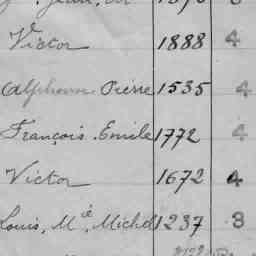 Victor 1888 4
Alphonse Pierre 1535 4
François Emile 1772 4
Victor 1672 4
Louis, M^ie, Michel 1237 3